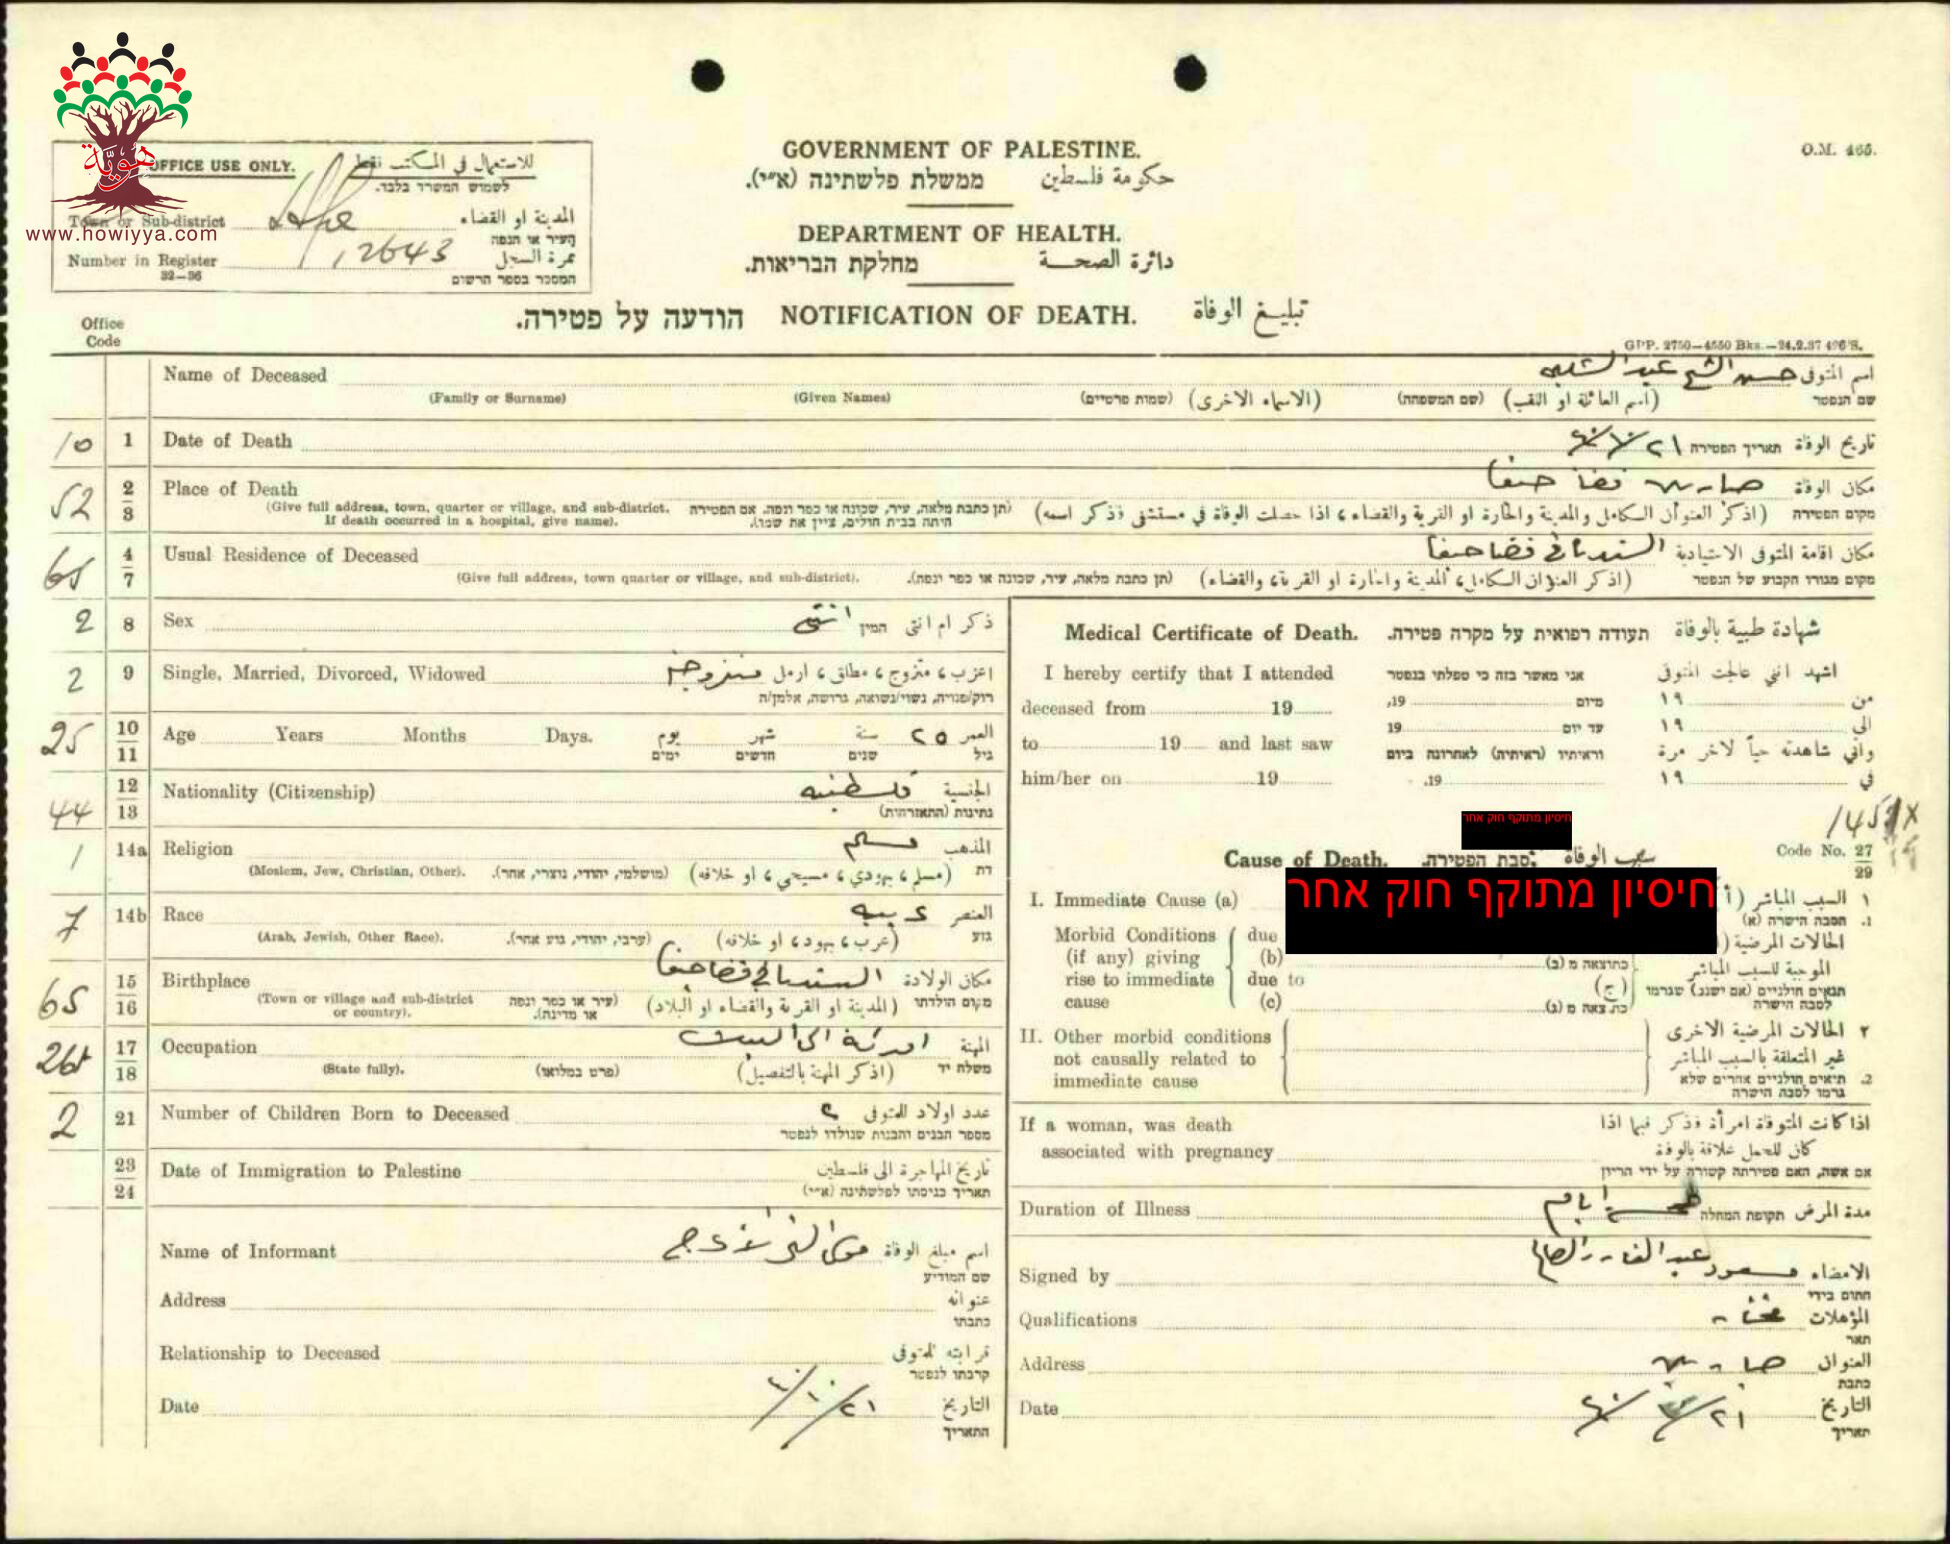 هويّة
www.howiyya.com
OFFICE USE ONLY. للاستعمال في المكتب فقط
לשמוש המשרד בלבד.
Town or Sub-district المدينة او القضاء
העיר או הנפה
Number in Register 12643 نمرة السجل
32—36 המספר בספר הרשום
GOVERNMENT OF PALESTINE.
ממשלת פלשתינה (א״י). حكومة فلسطين
DEPARTMENT OF HEALTH.
מחלקת הבריאות. دائرة الصحة
O.M. 465.
הודעה על פטירה. NOTIFICATION OF DEATH. تبليغ الوفاة
Office
Code
GPP. 2750—4550 Bks.—24.2.37 496'S.
Name of Deceased اسم المتوفى حسن الشيخ عبد
(Family or Surname) (Given Names) (שמות פרטיים) (الاسماء الاخرى) (שם המשפחה) (اسم العائلة او اللقب) שם הנפטר
10 1 Date of Death تاريخ الوفاة תאריך הפטירה ٢١/١٠/٤٠
52 2/3 Place of Death مكان الوفاة قضا حيفا
(Give full address, town, quarter or village, and sub-district. If death occurred in a hospital, give name).
(תן כתבת מלאה, עיר, שכונה או כפר ונפה. אם הפטירה היתה בבית חולים, ציין את שמו).
(اذكر العنوان الكامل والمدينة والحارة او القرية والقضاء، اذا حصلت الوفاة في مستشفى فذكر اسمه) מקום הפטירה
65 4/7 Usual Residence of Deceased مكان اقامة المتوفى الاعتيادية السنديانة قضا حيفا
(Give full address, town quarter or village, and sub-district). (תן כתבת מלאה, עיר, שכונה או כפר ונפה). (اذكر العنوان الكامل، المدينة والحارة او القرية، والقضاء) מקום מגורו הקבוע של הנפטר
2 8 Sex ذكر ام انثى המין انثى
2 9 Single, Married, Divorced, Widowed اعزب، متزوج، مطلق، ارمل متزوجة
רוק/פנויה, נשוי/נשואה, גרושה, אלמן/ה
25 10/11 Age Years Months Days. يوم شهر سنة ٢٥ العمر
ימים חדשים שנים גיל
44 12/13 Nationality (Citizenship) الجنسية فلسطينيه
נתינות (התאזרחות)
1 14a Religion المذهب مسلم
(Moslem, Jew, Christian, Other). (מושלמי, יהודי, נוצרי, אחר). (مسلم، يهودي، مسيحي، او خلافه) דת
7 14b Race العنصر عربيه
(Arab, Jewish, Other Race). (ערבי, יהודי, גזע אחר). (عرب، يهود، او خلافه) גזע
65 15/16 Birthplace مكان الولادة السنديانة قضا حيفا
(Town or village and sub-district or country). (עיר או כפר ונפה או מדינה). (المدينة او القرية والقضاء او البلاد) מקום הולדתו
17/18 Occupation المهنة
(State fully). (פרט במלואו) (اذكر المهنة بالتفصيل) משלח יד
2 21 Number of Children Born to Deceased عدد اولاد المتوفى ٢
מספר הבנים והבנות שנולדו לנפטר
23/24 Date of Immigration to Palestine تاريخ المهاجرة الى فلسطين
תאריך כניסתו לפלשתינה (א״י)
Name of Informant اسم مبلغ الوفاة
שם המודיע
Address عنوانه
כתבתו
Relationship to Deceased قرابته للمتوفى
קרבתו לנפטר
Date التاريخ ٢١/١٠/٤٠
התאריך
Medical Certificate of Death. תעודה רפואית על מקרה פטירה. شهادة طبية بالوفاة
I hereby certify that I attended אני מאשר בזה כי טפלתי בנפטר اشهد انني عالجت المتوفى
deceased from 19 מיום 19, من ١٩
to 19 and last saw עד יום 19 الى ١٩
וראיתיו (ראיתיה) לאחרונה ביום واني شاهدته حياً لاخر مرة
him/her on 19 19. في ١٩
חיסיון מתוקף חוק אחר
Cause of Death. סבת הפטירה. سبب الوفاة Code No. 27/29
חיסיון מתוקף חוק אחר
I. Immediate Cause (a) ١ السبب المباشر (أ
1. הסבה הישרה (א)
Morbid Conditions due الحالات المرضية
(if any) giving (b) כתוצאה מ (ב) الموجبة للسبب المباشر
rise to immediate due to (ج) תנאים חולניים (אם ישנם) שגרמו
cause (c) כתוצאה מ (ג) לסבה הישרה
II. Other morbid conditions ٢ الحالات المرضية الاخرى
not causally related to غير المتعلقة بالسبب المباشر
immediate cause 2. תנאים חולניים אחרים שלא גרמו לסבה הישרה
If a woman, was death اذا كانت المتوفاة امرأة فذكر فيما اذا
associated with pregnancy كان للحمل علاقة بالوفاة
אם אשה, האם פטירתה קשורה על ידי הריון
Duration of Illness مدة المرض תקופת המחלה خمسة ايام
Signed by الامضاء مسعود عبد القادر
חתום בידי
Qualifications المؤهلات مختار
תאר
Address العنوان
כתבת
Date التاريخ
תאריך